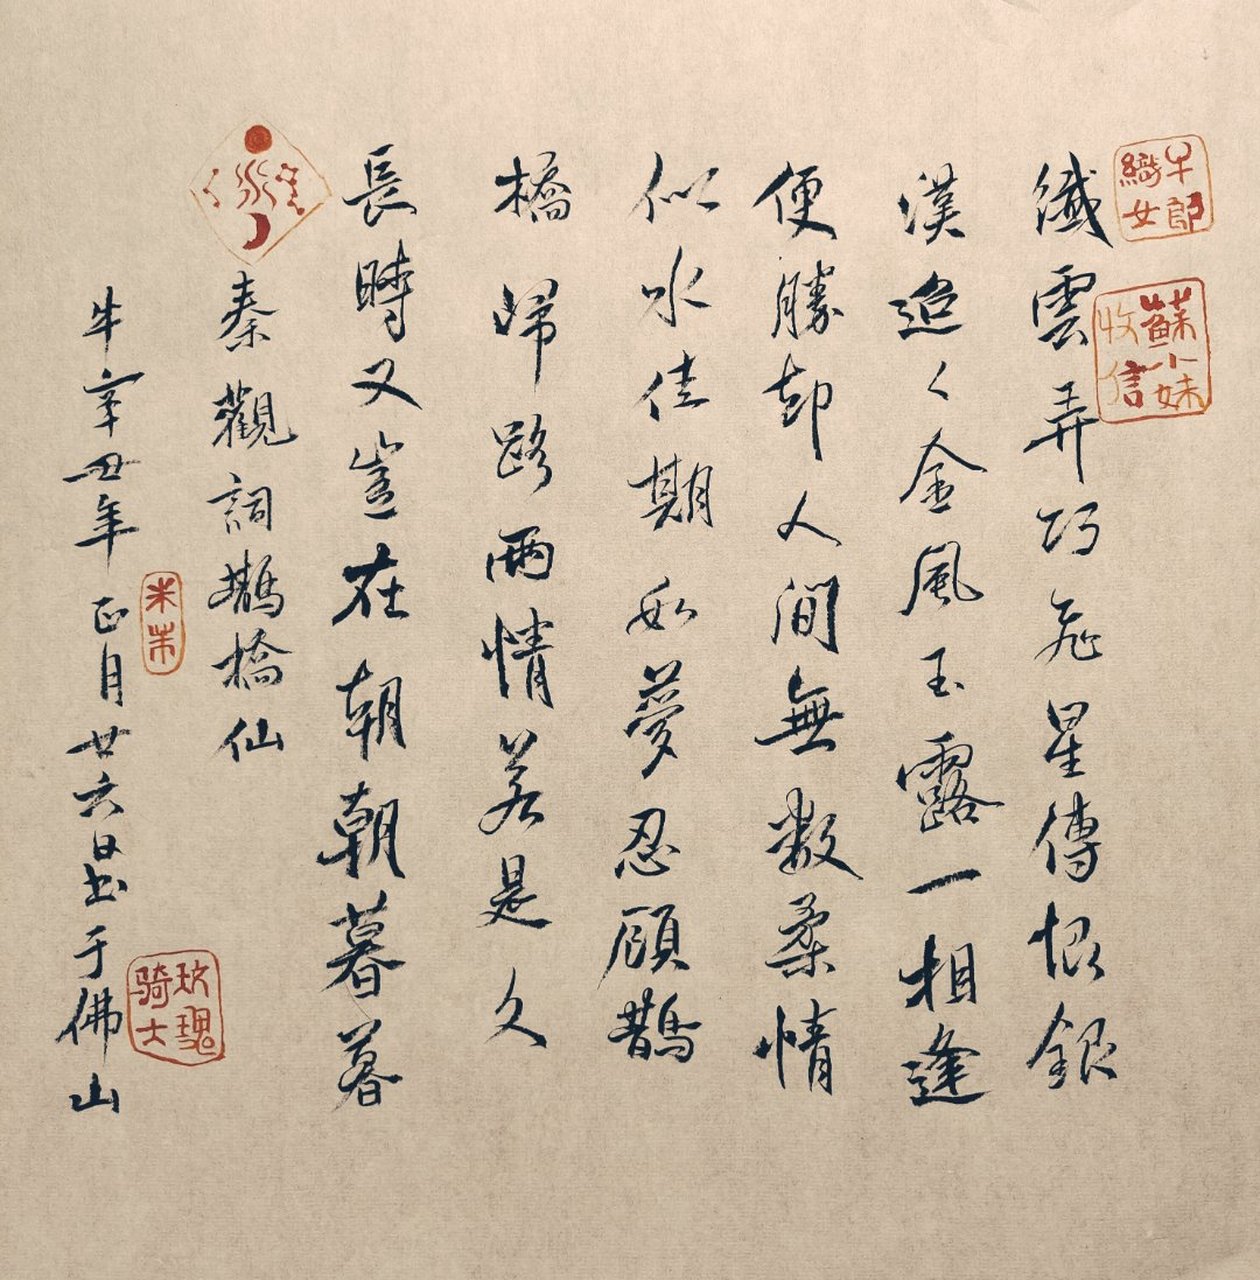 牛郎
織女
蘇小妹
收信
纖雲弄巧飛星傳恨銀
漢迢々金風玉露一相逢
便勝却人間無数柔情
似水佳期如夢忍顧鵲
橋歸路兩情若是久
長時又豈在朝朝暮暮
秦觀詞鵲橋仙
牛辛丑年正月廿六日書于佛山
米芾
玫瑰
骑士